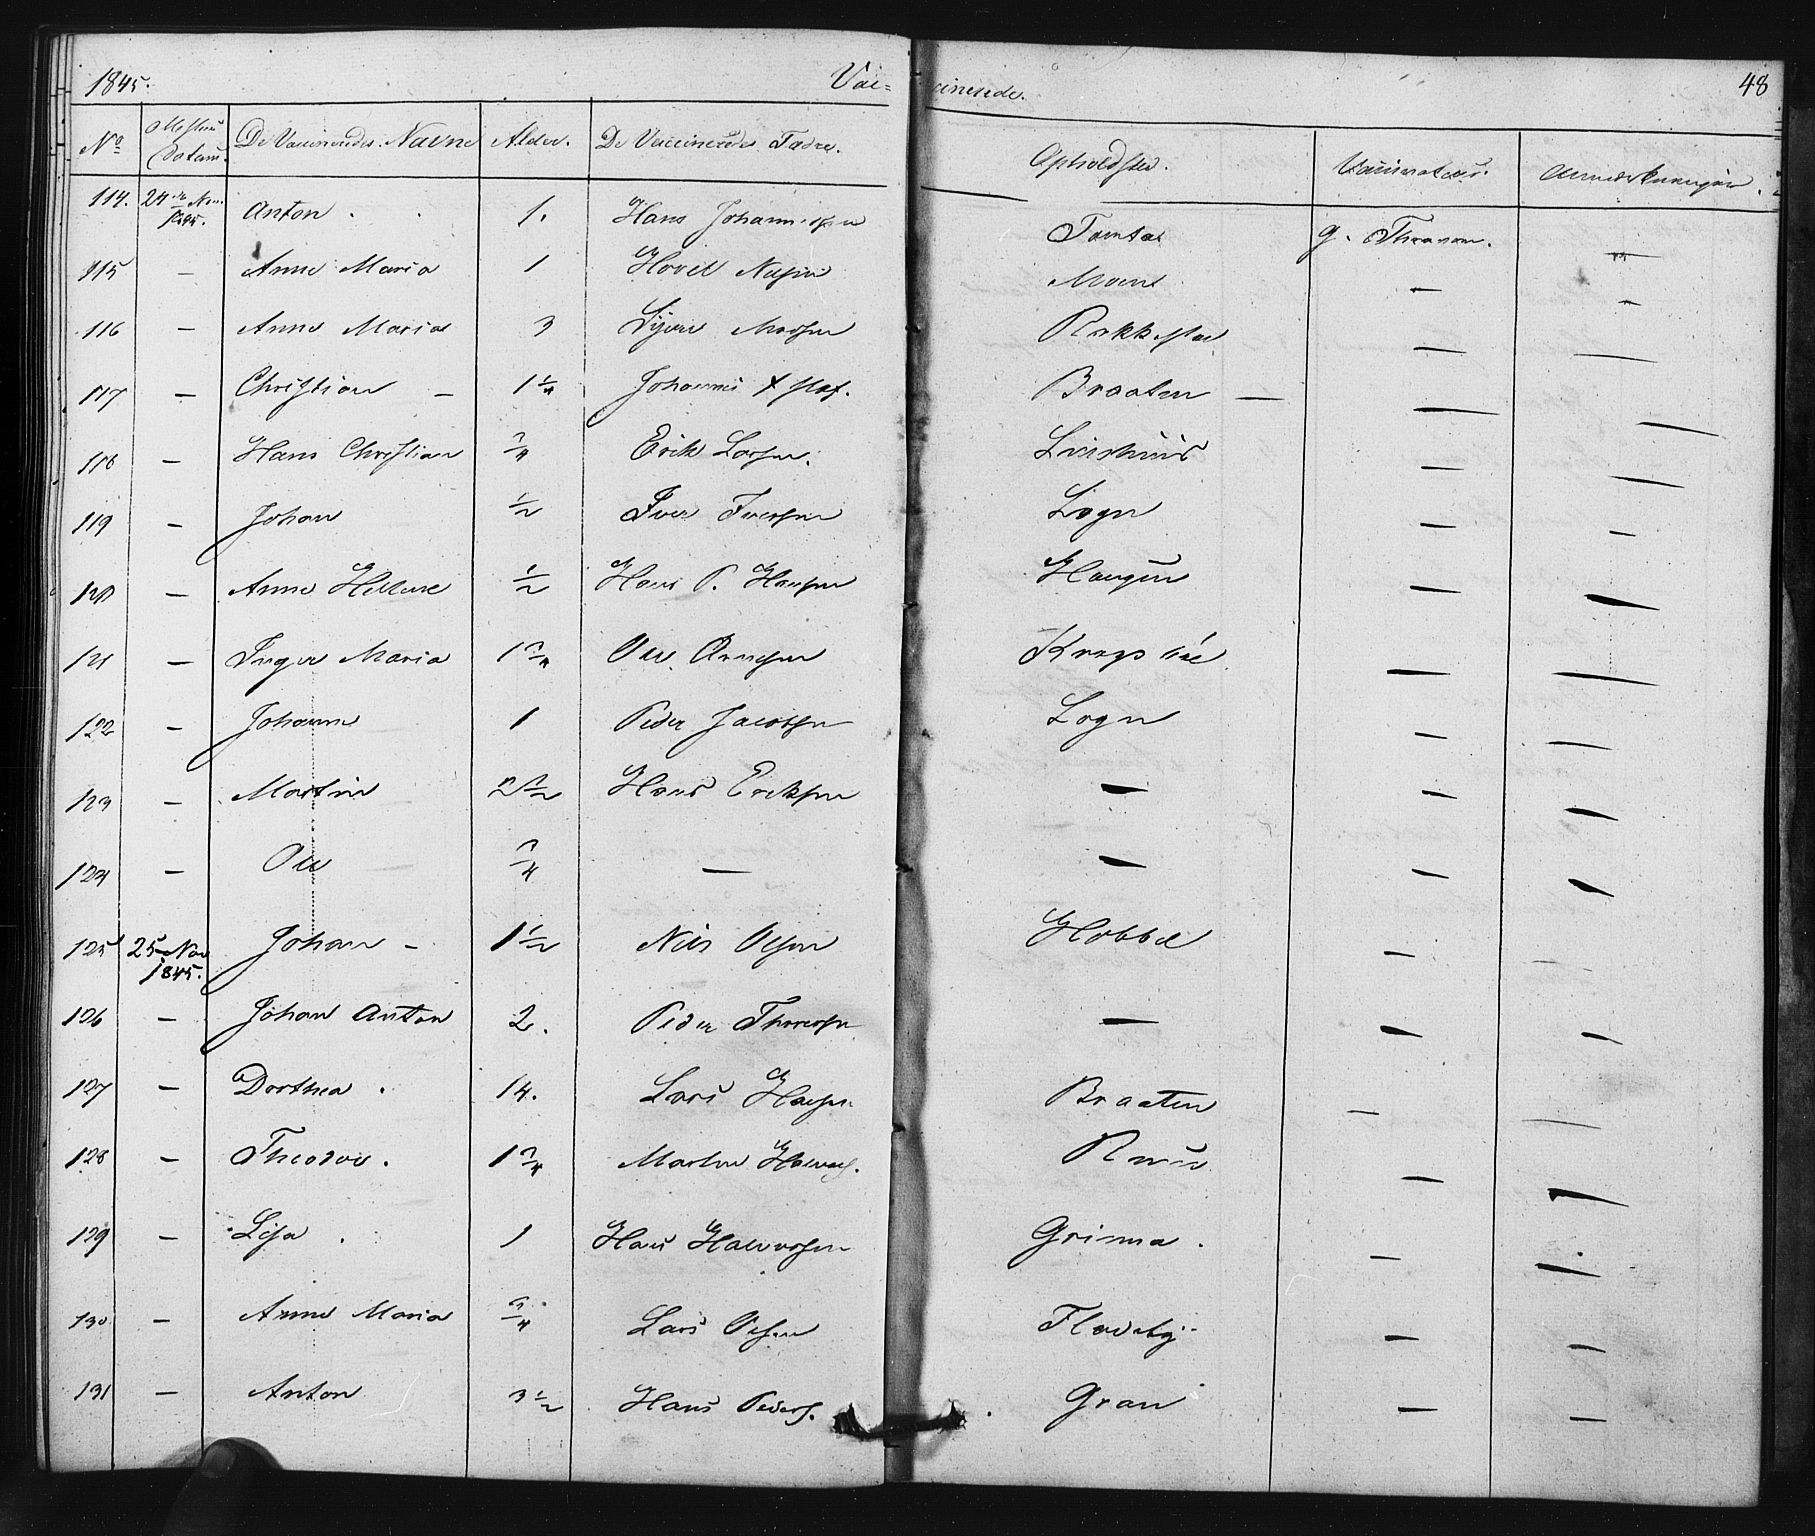 1845. Vac= cinerede. 48
No Attestens Datum. De Vaccineredes Navne Alder. De Vaccineredes Fædre. Opholdsted. Vaccinateur. Anmærkninger.
114. 24 Nov. 1845. Anton 1. Hans Johannesen Tomta G. Thoresen. —
115 — Anne Maria 1 Hovel Moen — —
116 — Anne Maria 3 Rakkestad — —
117 — Christian — 1 1/4 Johannes Braaten — — —
118 — Hans Christian 3/4 Erik Larsen. — —
119 — Johan 1/2 Iver Iversen Logn — —
120 — Anne Hellene 1/2 Hans P. Hansen Haugen — —
121 — Inger Maria 1 3/4 Ole Arnesen — —
122 — Johanne 1 Peder Jacobsen Logn — —
123 — Martin 2 1/2 Hans Eriksen — — —
124 — Ole 3/4 — — — —
125 25 Nov 1845. Johan — 1 1/2 Nils Olsen Hobbel — —
126 — Johan Anton 2. Peder Thoresen — — —
127 — Dorthea . 14. Lars Braaten — —
128 — Theodor. 1 3/4 Martin Halvors. — —
129 — Lisa . 1 Hans Halvorsen Grinna . — —
130 — Anne Maria 3/4 Lars Olsen Fladeby — —
131 — Anton 3 1/2 Hans Peders. Gran — —